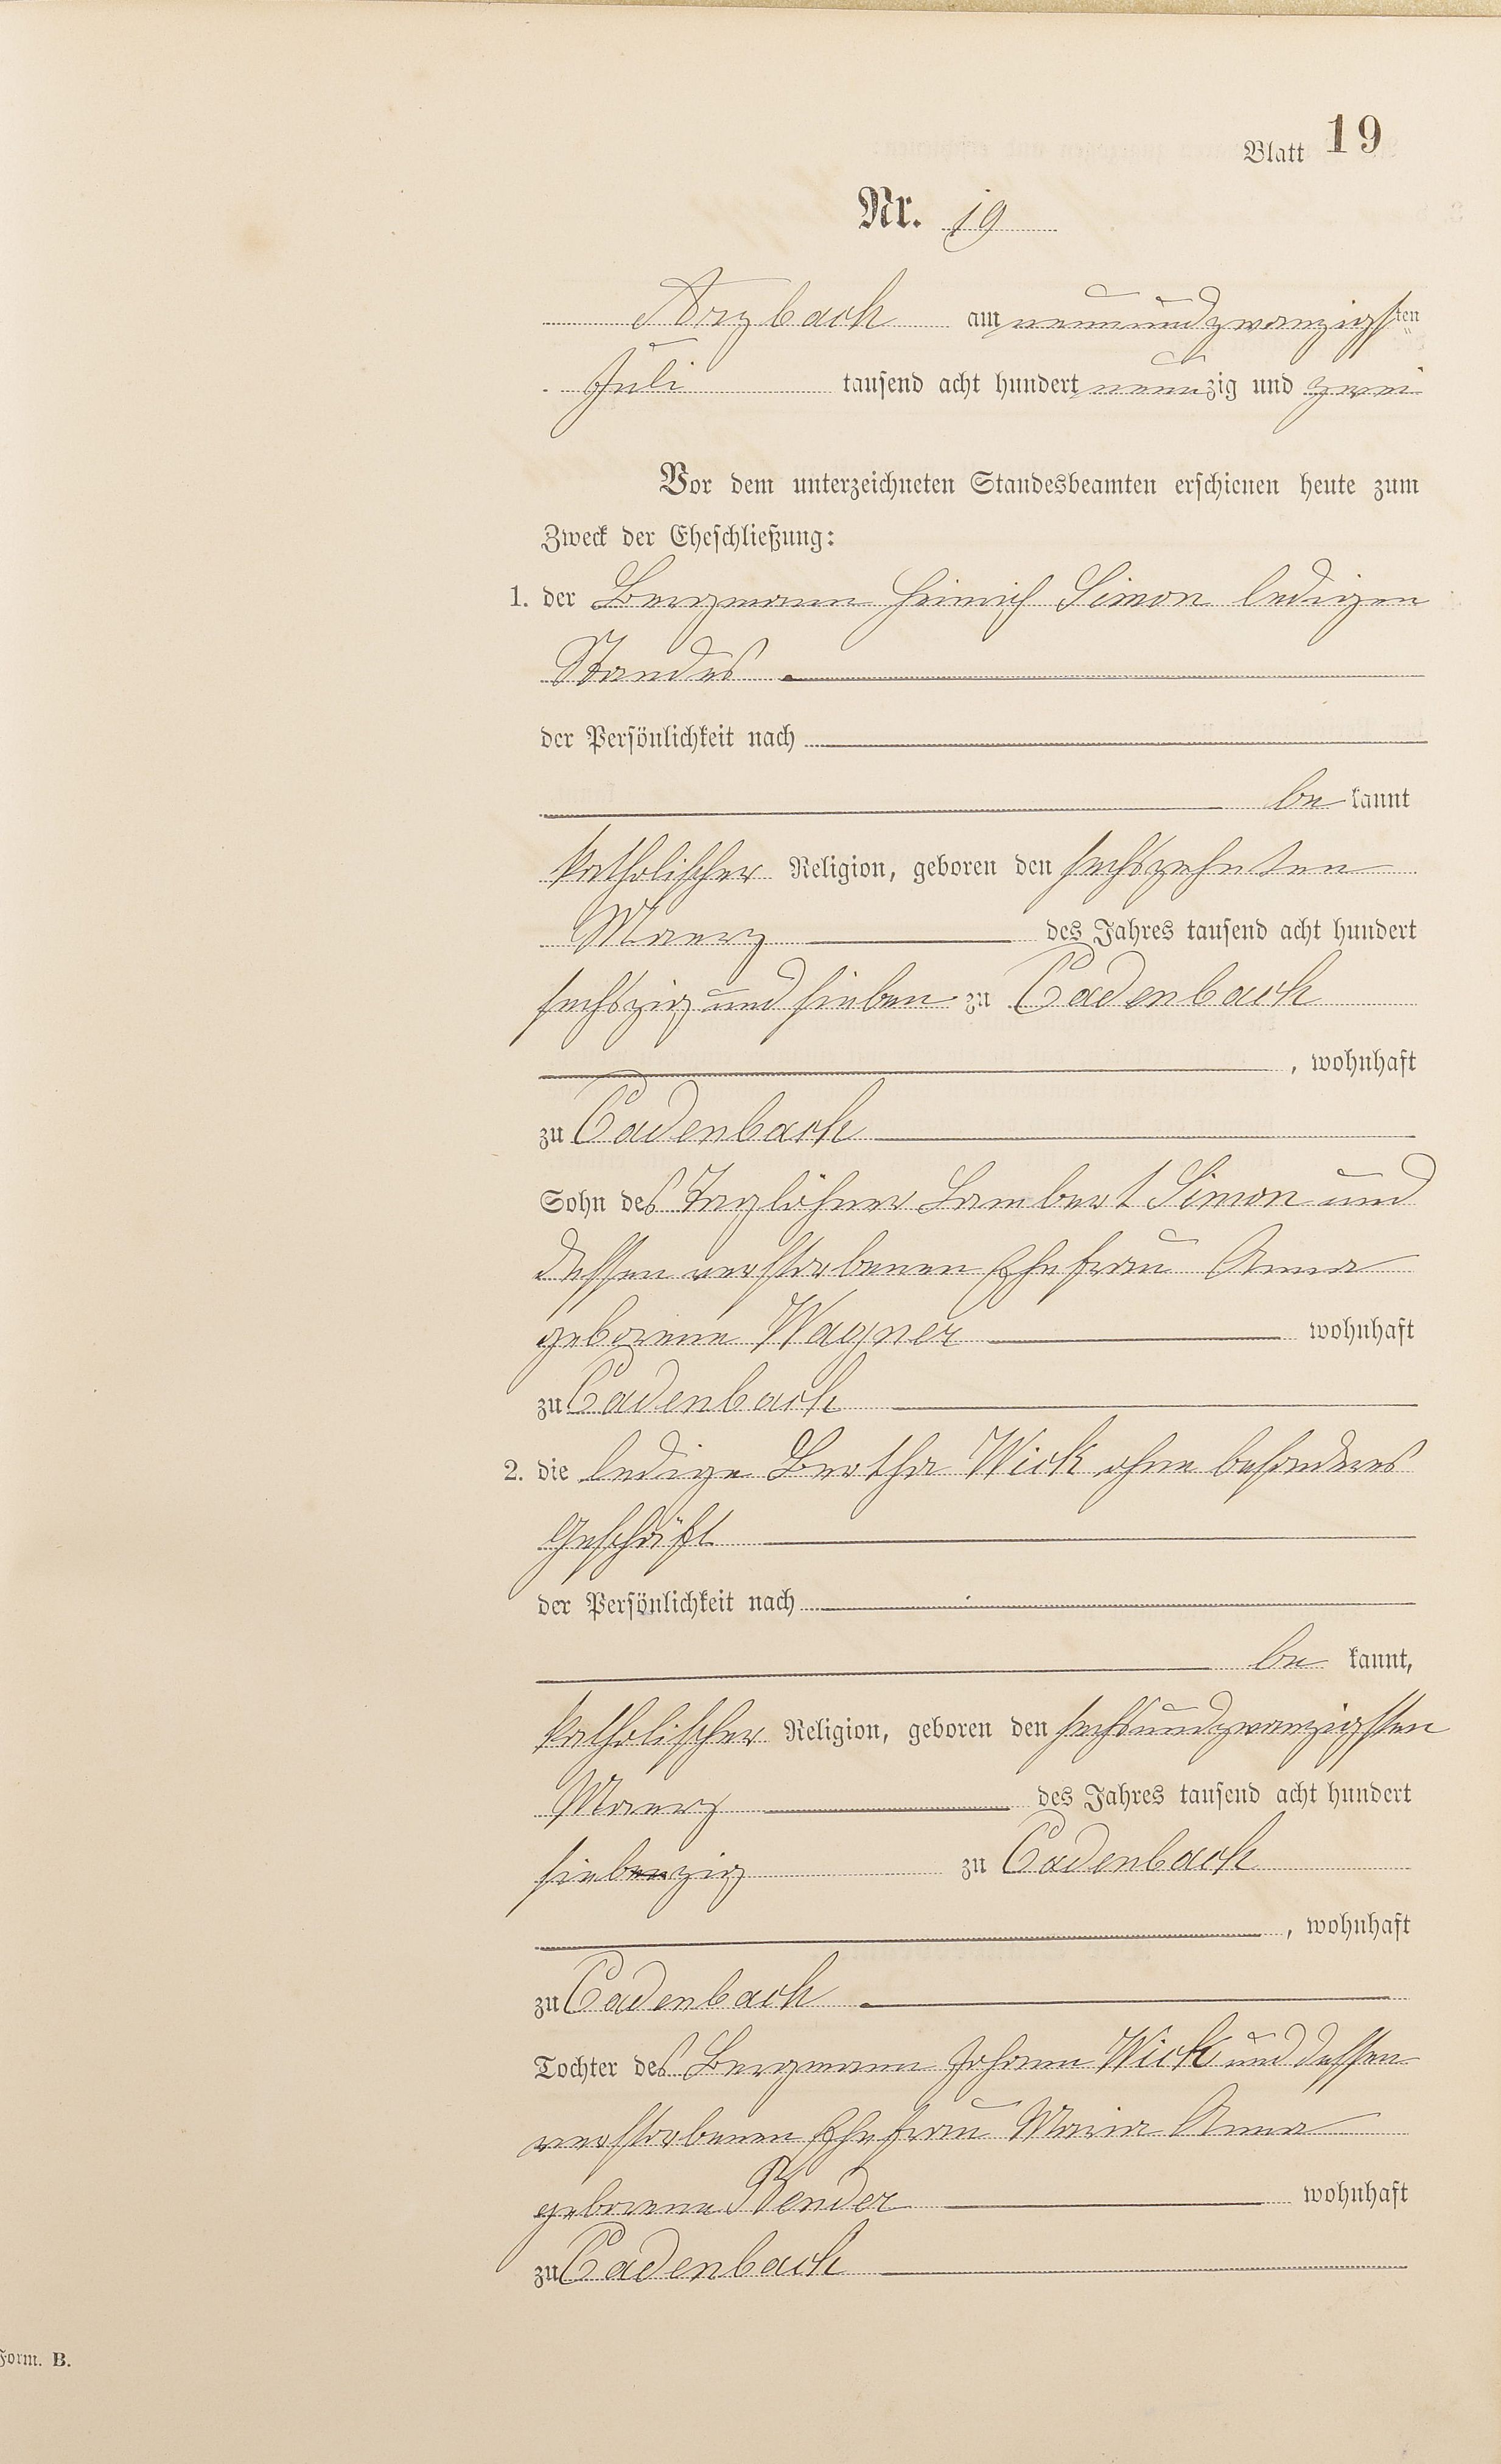 Blatt 19
Nr. 19
Arzbach am neunundzwanzigsten
Juli tausend acht hundert neunzig und zwei
Vor dem unterzeichneten Standesbeamten erschienen heute zum
Zweck der Eheschließung:
1. der Bergmann Heinrich Simon ledigen
Standes
der Persönlichkeit nach
be kannt
katholischer Religion, geboren den sechszehnten
Maerz des Jahres tausend acht hundert
sechszig und sieben zu Cadenbach
, wohnhaft
zu Cadenbach
Sohn des Taglöhner Lambert Simon und
dessen verstorbenen Ehefrau Anna
geborene Wagner wohnhaft
zu Cadenbach
2. die ledige Bertha Wick ohne besonderes
Geschäft
der Persönlichkeit nach
be kannt,
katholischer Religion, geboren den sechsundzwanzigsten
Maerz des Jahres tausend acht hundert
siebenzig zu Cadenbach
, wohnhaft
zu Cadenbach
Tochter des Bergmann Johann Wick und dessen
verstorbenen Ehefrau Maria Anna
geborene Bender wohnhaft
zu Cadenbach
Form. B.